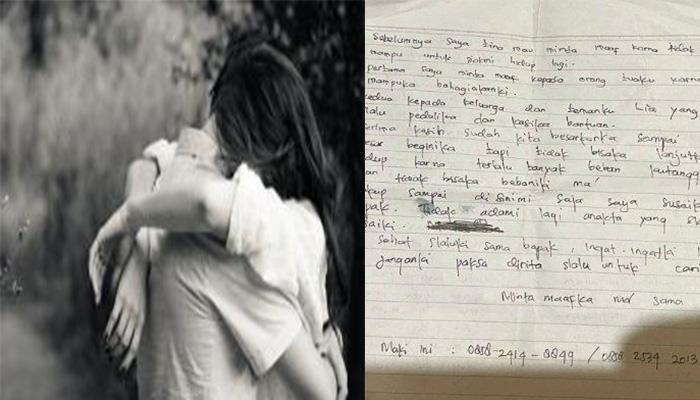 Sebelumnya saya Lino mau minta maaf karna tidak
mampu untuk jalani hidup lagi.
pertama saya minta maaf kepada orang tuaku karna
mampuka bahagiakanki.
kedua kepada keluarga dan temanku Lia yang
lalu pedulika dan kasika bantuan.
terima kasih sudah kita besarkanka sampai
besar beginika tapi tidak bisaka lanjutk
dup karna terlalu banyak beban
an tidak bisaka bebaniki ma'
kup sampai disinimi saja saya
pak. Tidak adami lagi anakta yang
saiki.
sehat slaluki sama bapak, ingat-ingatki
janganki paksa dirita slalu untuk car
Minta maafka ma' sama
Maki ini : 0858-2414-0849 / 0858 2534 2013